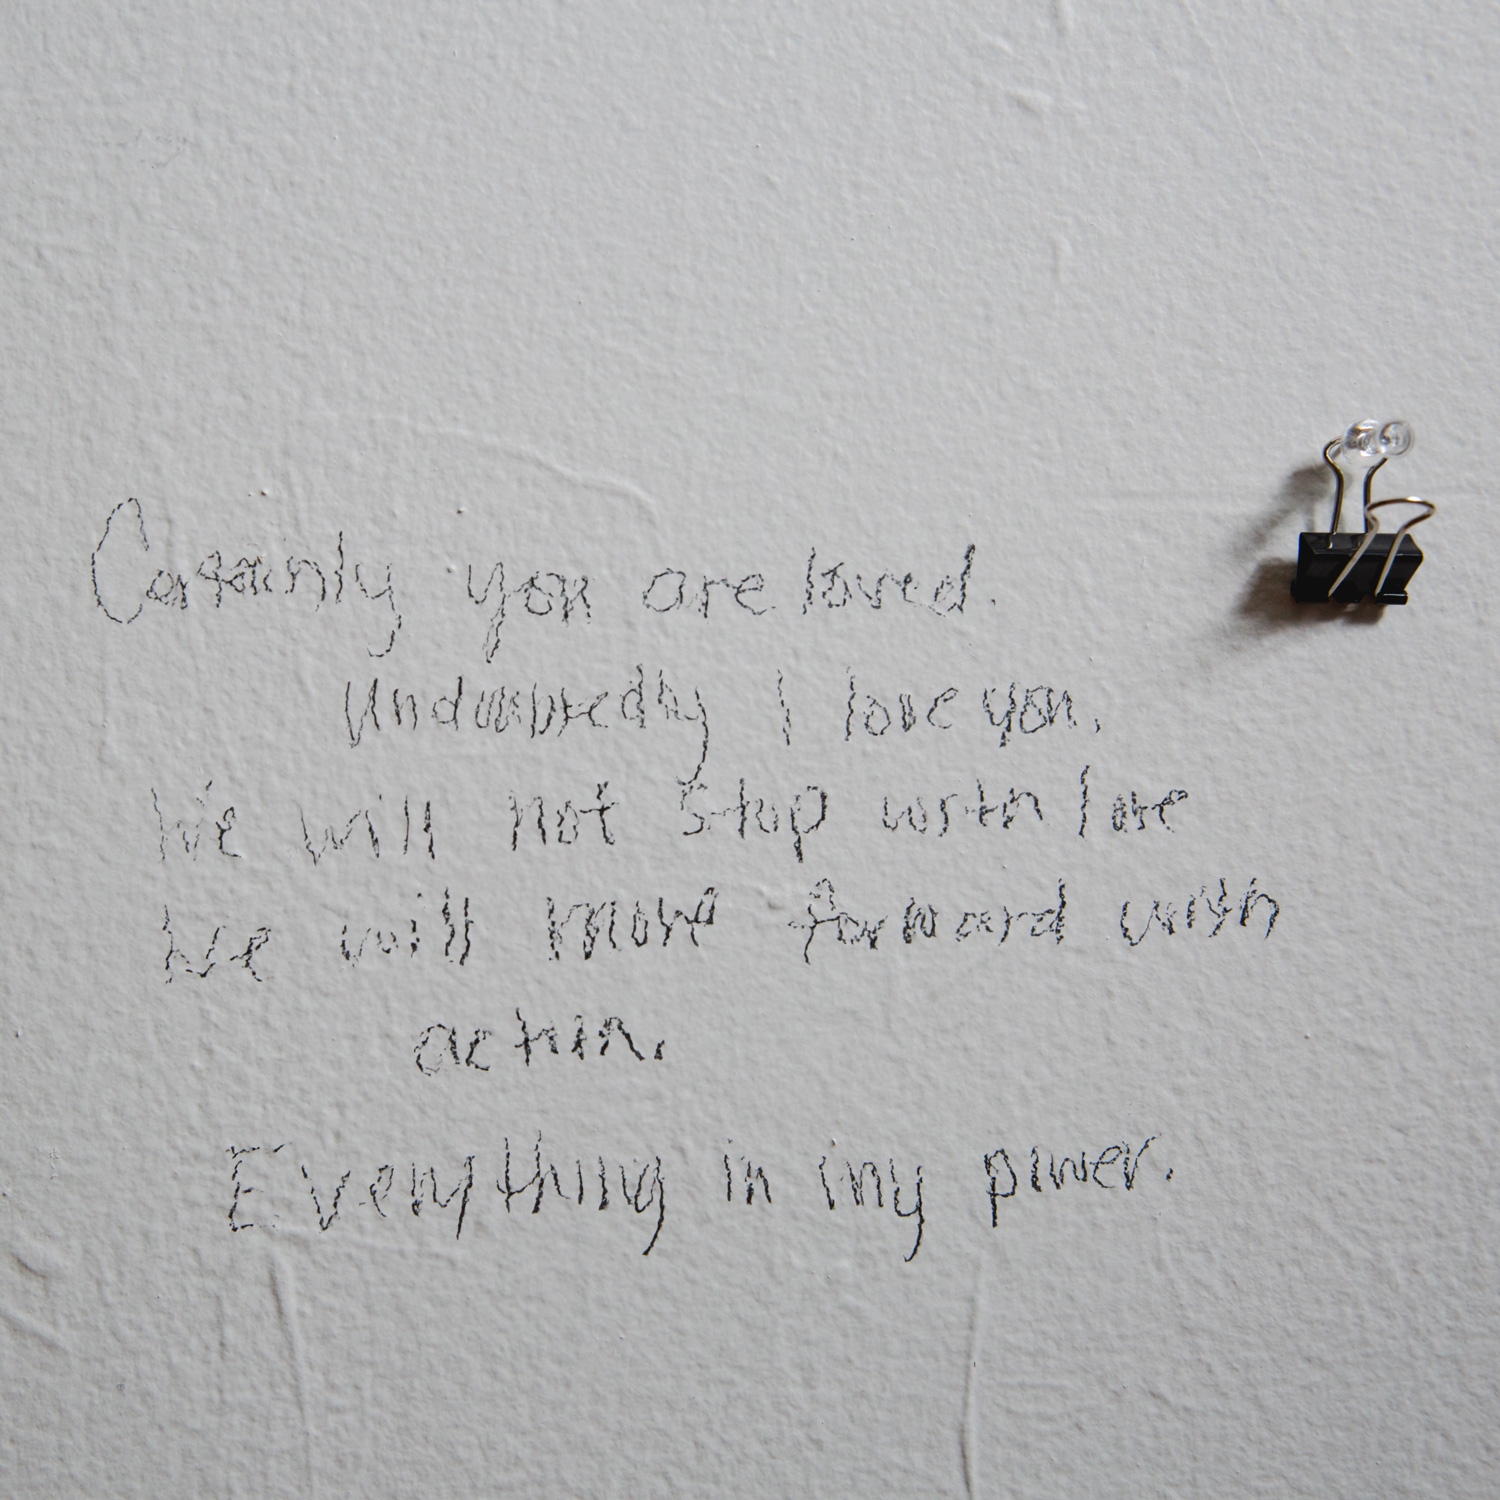 Certainly you are loved.
Undoubtedly I love you.
We will not stop with love
We will move forward with
action.
Everything in my power.